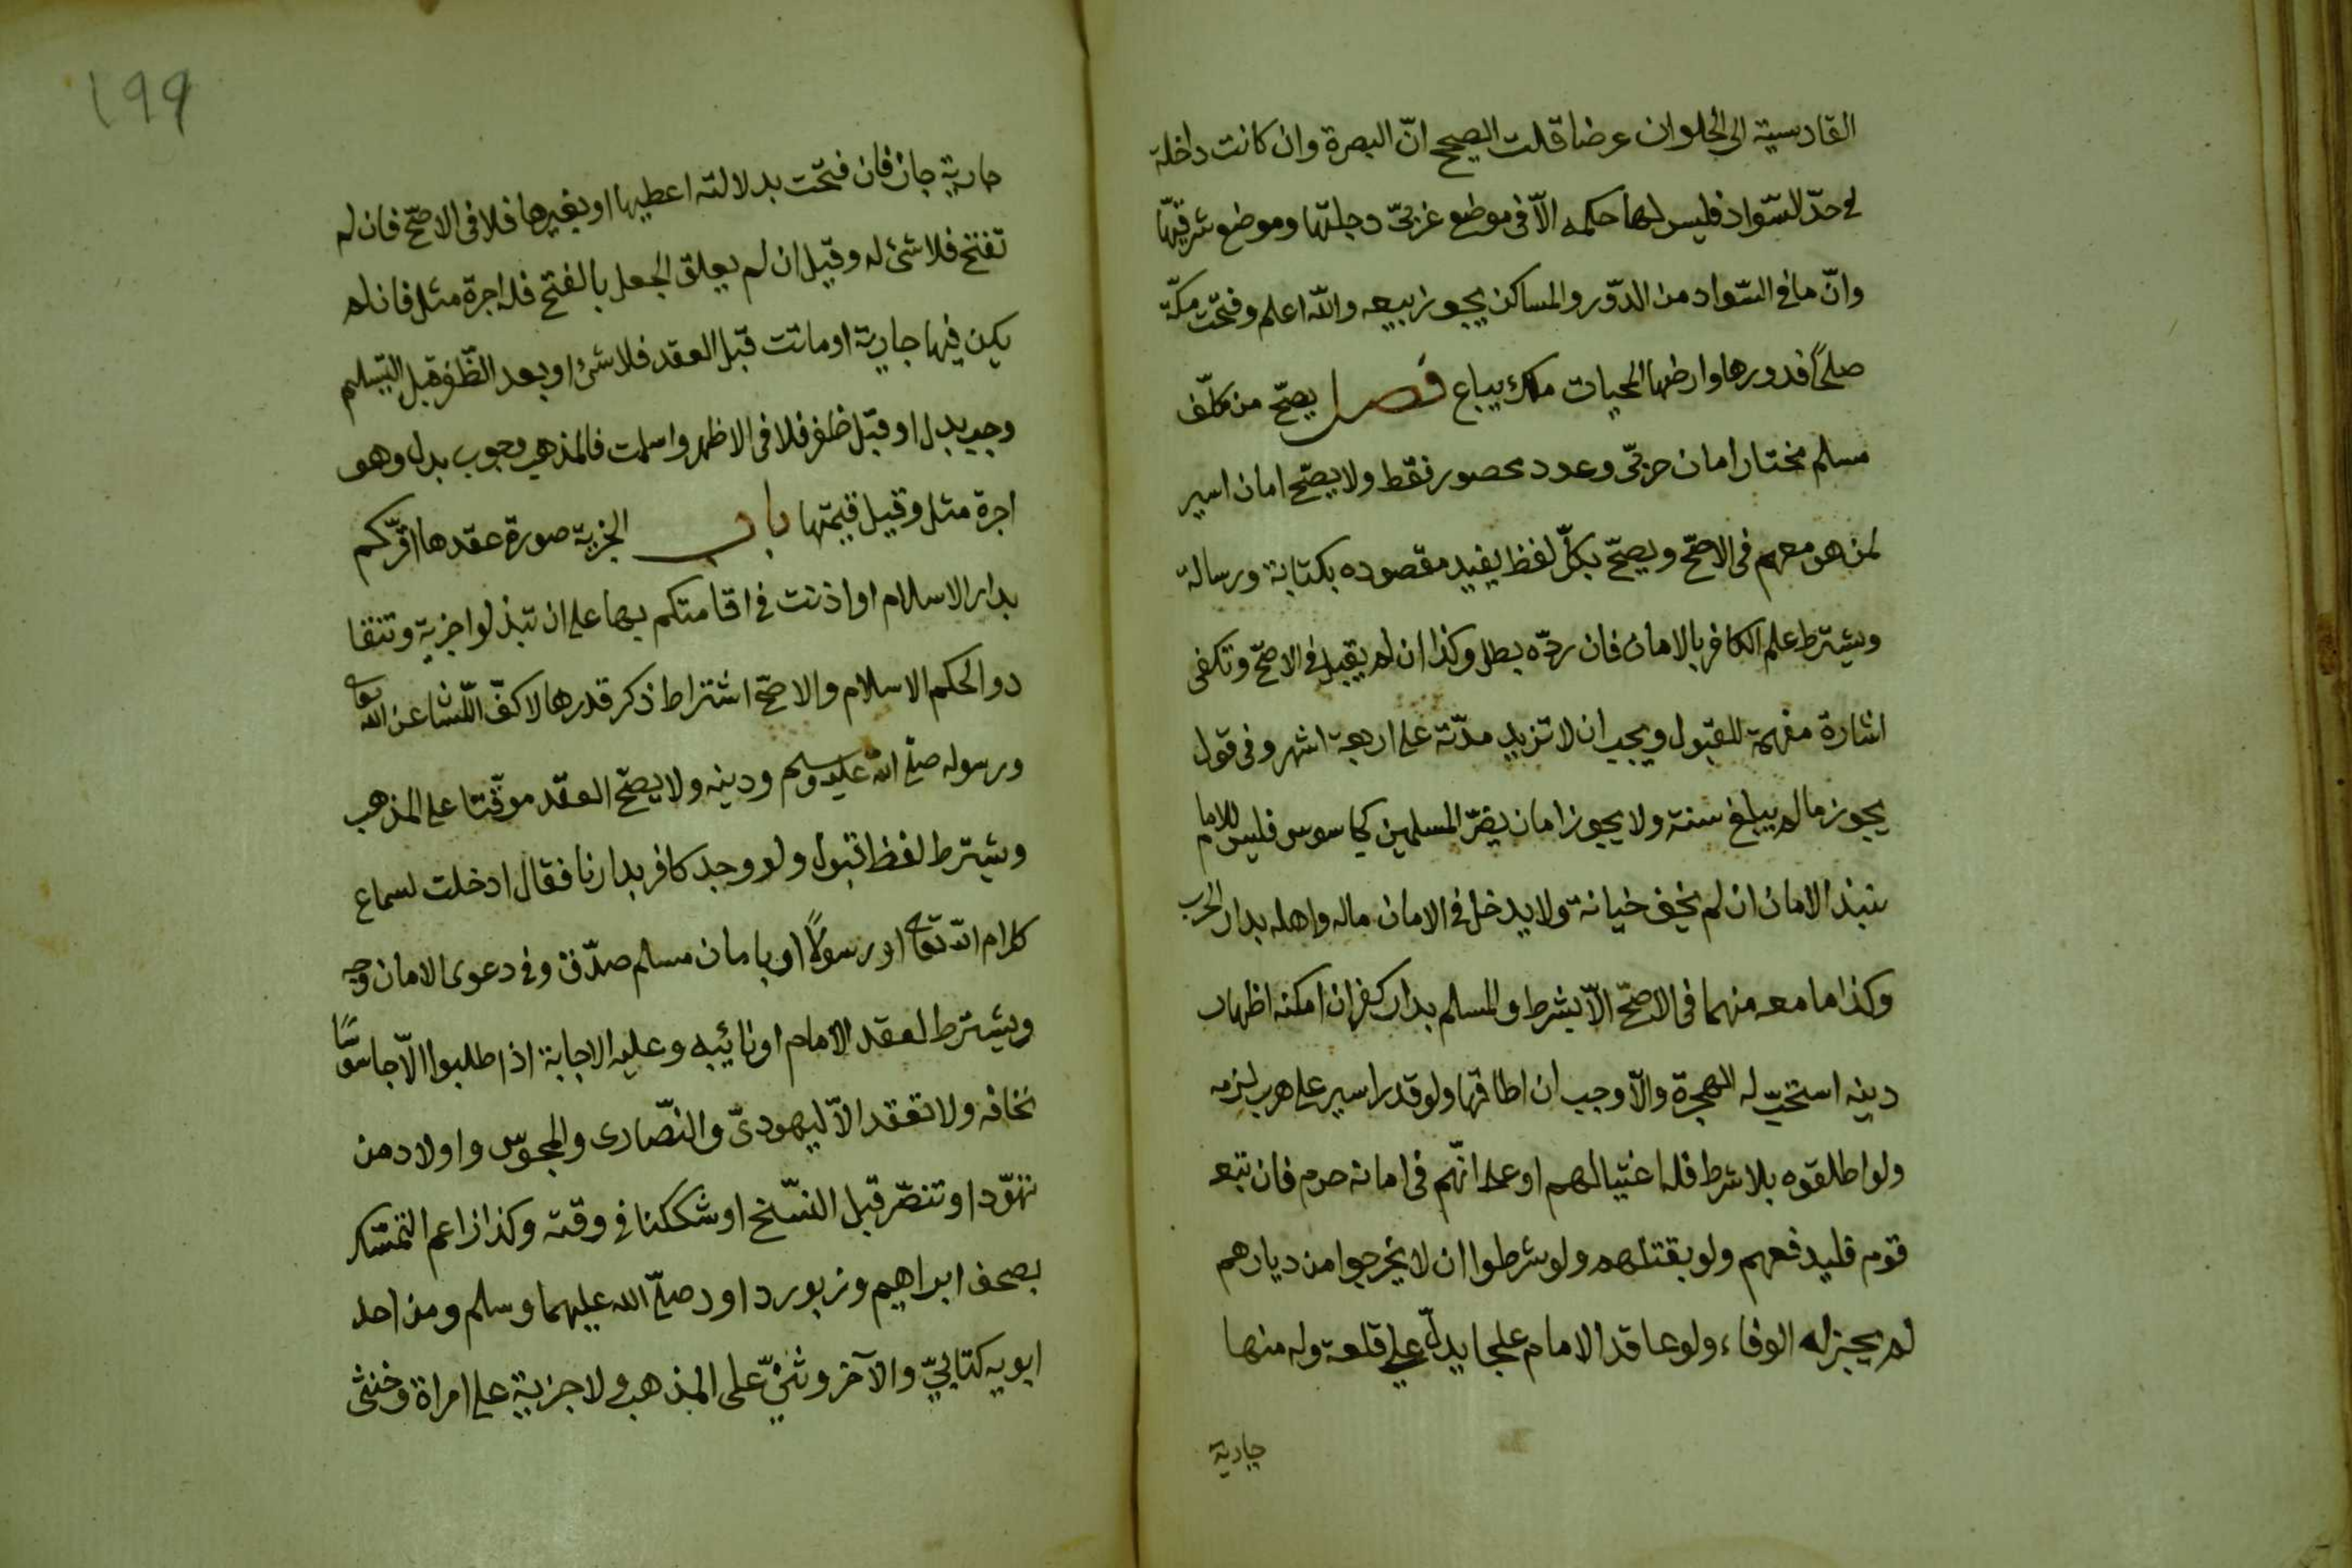 القادسية الى الحلوان عرضا قلت الصحيح انّ البصرة وان كانت داخلة
في حدّ السّواد فليس لها حكمه الّا فى موضع غربىّ دجلتها وموضع شرقيّها
وانّ ما في السّواد من الدّور والمساكن يجوز بيعه والله اعلم وفتحت مكّة
صلحًا فدورها وارضها المحيات ملك يباع فصل يصحّ من مكلّف
مسلم مختار امان حربىّ وعدد محصور فقط ولا يصحّ امان اسير
لمن هو معهم فى الاصحّ ويصحّ بكلّ لفظ يفيد مقصوده بكتابة ورسالة
ويشترط علم الكافر بالامان فان ردّه بطل وكذا ان لم يقبل فى الاصحّ وتكفى
اشارة مفهمة للقبول ويجب ان لا تزيد مدّته على اربعة اشهر وفى قول
يجوز مالم يبلغ سنة ولا يجوز امان يضرّ المسلمين كجاسوس فليس للامام
نبذ الامان ان لم يخف خيانة ولا يدخل فى الامان ماله واهله بدار الحرب
وكذا ما معه منهما فى الاصحّ الّا بشرط والمسلم بدار كفر ان امكنه اظهار
دينه استحبّ له الهجرة والّا وجب ان اطاقها ولو قدر اسير على هرب لزمه
ولو اطلقوه بلا شرط فله اغتيالهم او على انّهم فى امانه حرم فان تبعه
قوم فليدفعهم ولو بقتلهم ولو شرطوا ان لا يخرجوا من ديارهم
لم يجز له الوفاء ولو عاقد الامام علجا يدلّ على قلعة وله منها
جارية
199
جارية جاز فان فتحت بدلالته اعطيها او بغيرها فلا فى الاصحّ فان لم
تفتح فلا شئ له وقيل ان لم يعلق الجعل بالفتح فله اجرة مثل فان لم
يكن فيها جارية او ماتت قبل العقد فلا شئ او بعد الظّفر قبل التسليم
وجب بدل او قبل ظفر فلا فى الاظهر واسلمت فالمذهب وجوب بدل وهو
اجرة مثل وقيل قيمتها باب الجزية صورة عقدها اقرّكم
بدار الاسلام او اذنت فى اقامتكم بها على ان تبذلوا جزية وتنقا
دوا لحكم الاسلام والاصحّ اشتراط ذكر قدرها لا كفّ اللّسان عن الله تعالى
ورسوله صلى الله عليه وسلم ودينه ولا يصحّ العقد موقّتا على المذهب
ويشترط لفظ قبول ولو وجد كافر بدارنا فقال ادخلت لسماع
كلام الله تعالى او رسولًا او بامان مسلم صدّق وفى دعوى الامان وجه
ويشترط لعقد الامام او نائبه وعليه الاجابة اذا طلبوا الّا جاسوسًا
نخافه ولا تعقد الّا ليهودىّ والنّصارى والمجوس واولاد من
تهوّد او تنصّر قبل النّسخ او شككنا فى وقته وكذا زاعم التمسّك
بصحف ابراهيم وزبور داود صلى الله عليهما وسلم ومن احد
ابويه كتابىّ والآخر وثنىّ على المذهب ولا جزية على امراة وخنثى